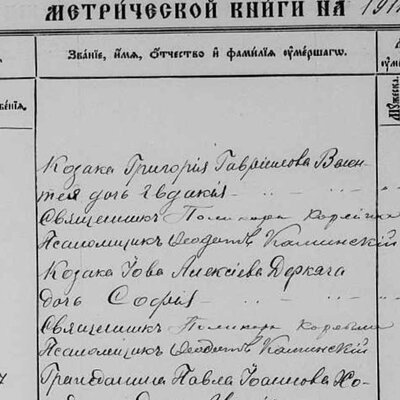 МЕТРИЧЕСКОЙ КНИГИ НА 191
Званіе, имя, отчество и фамилія умершаго.
Мужеска.
Козака Григорія Гавриилова
дочь Евдокія
Священникъ Поликарпъ
Псаломщикъ Ѳеодотъ Калинскій
Козака Іова Алексіева Деркача
дочь Софія
Священникъ Поликарпъ
Псаломщикъ Ѳеодотъ Калинскій
Гражданина Павла Іоаннова Хо-